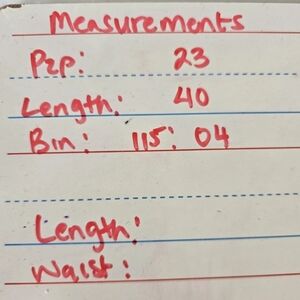 Measurements
P2P: 23
Length: 40
Bin: 115: 04
Length:
Waist: